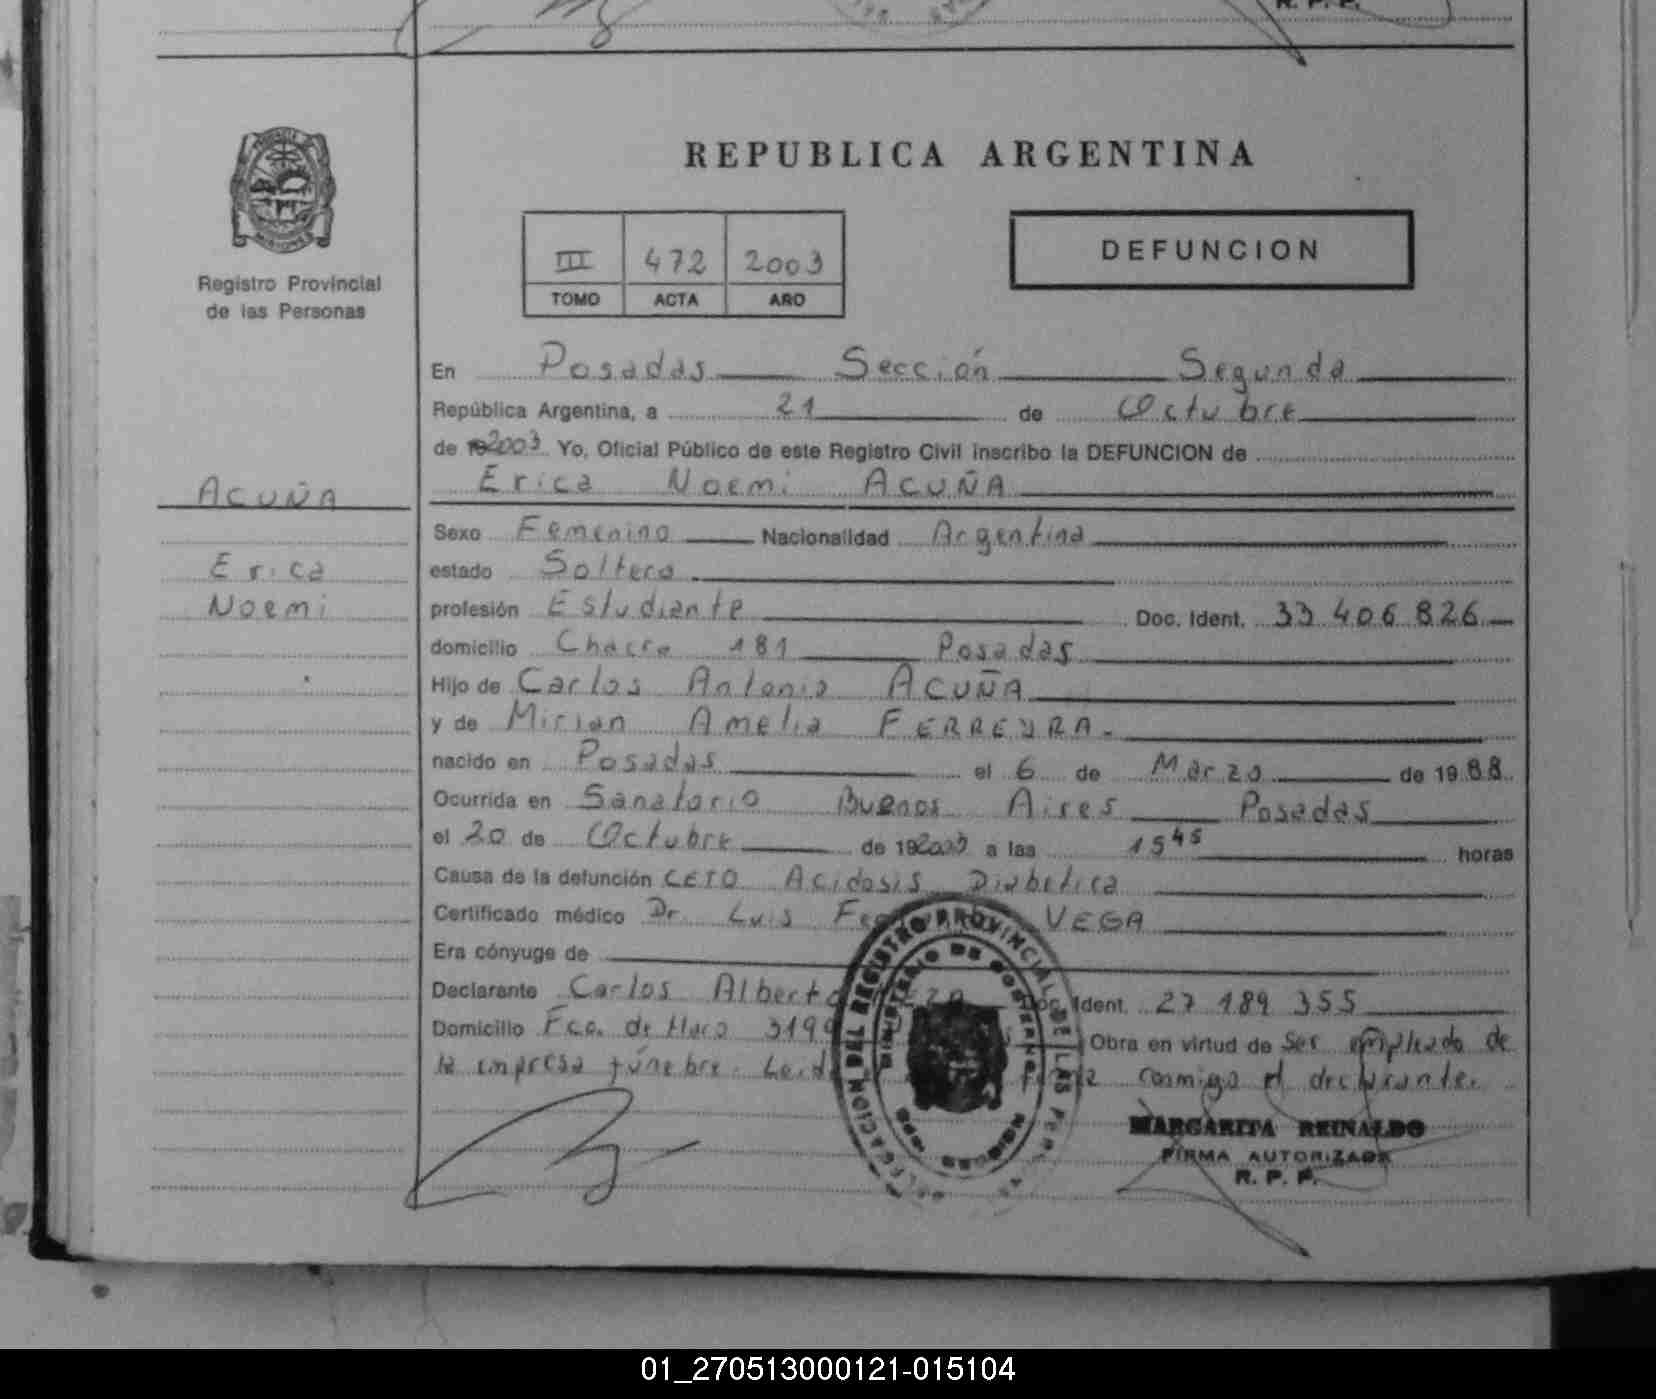 R. P. P.
REPUBLICA ARGENTINA
III 472 2003
TOMO ACTA AÑO
DEFUNCION
Registro Provincial
de las Personas
En Posadas Sección Segunda
República Argentina, a 21 de Octubre
de 2003 Yo, Oficial Público de este Registro Civil inscribo la DEFUNCION de
Erica Noemi ACUÑA
ACUÑA
Erica
Noemi
Sexo Femenino Nacionalidad Argentina
estado Soltera
profesión Estudiante Doc. Ident. 33 406 826
domicilio Chacra 181 Posadas
Hijo de Carlos Antonio ACUÑA
y de Mirian Amelia FERREYRA.
nacido en Posadas el 6 de Marzo de 1988
Ocurrida en Sanatorio Buenos Aires Posadas
el 20 de Octubre de 192003 a las 15 45 horas
Causa de la defunción CETO Acidosis Diabetica
Certificado médico Dr. Luis VEGA
Era cónyuge de
Declarante Carlos Alberto Doc. Ident. 27 189 355
Domicilio Fco. de Haro Obra en virtud de ser empleado de
la empresa fúnebre. conmigo el declarante.
DELEGACION DEL REGISTRO PROVINCIAL DE LAS PERSONAS
MINISTERIO DE GOBIERNO
MISIONES
MARGARITA REINALDO
FIRMA AUTORIZADA
R. P. P.
01_270513000121-015104